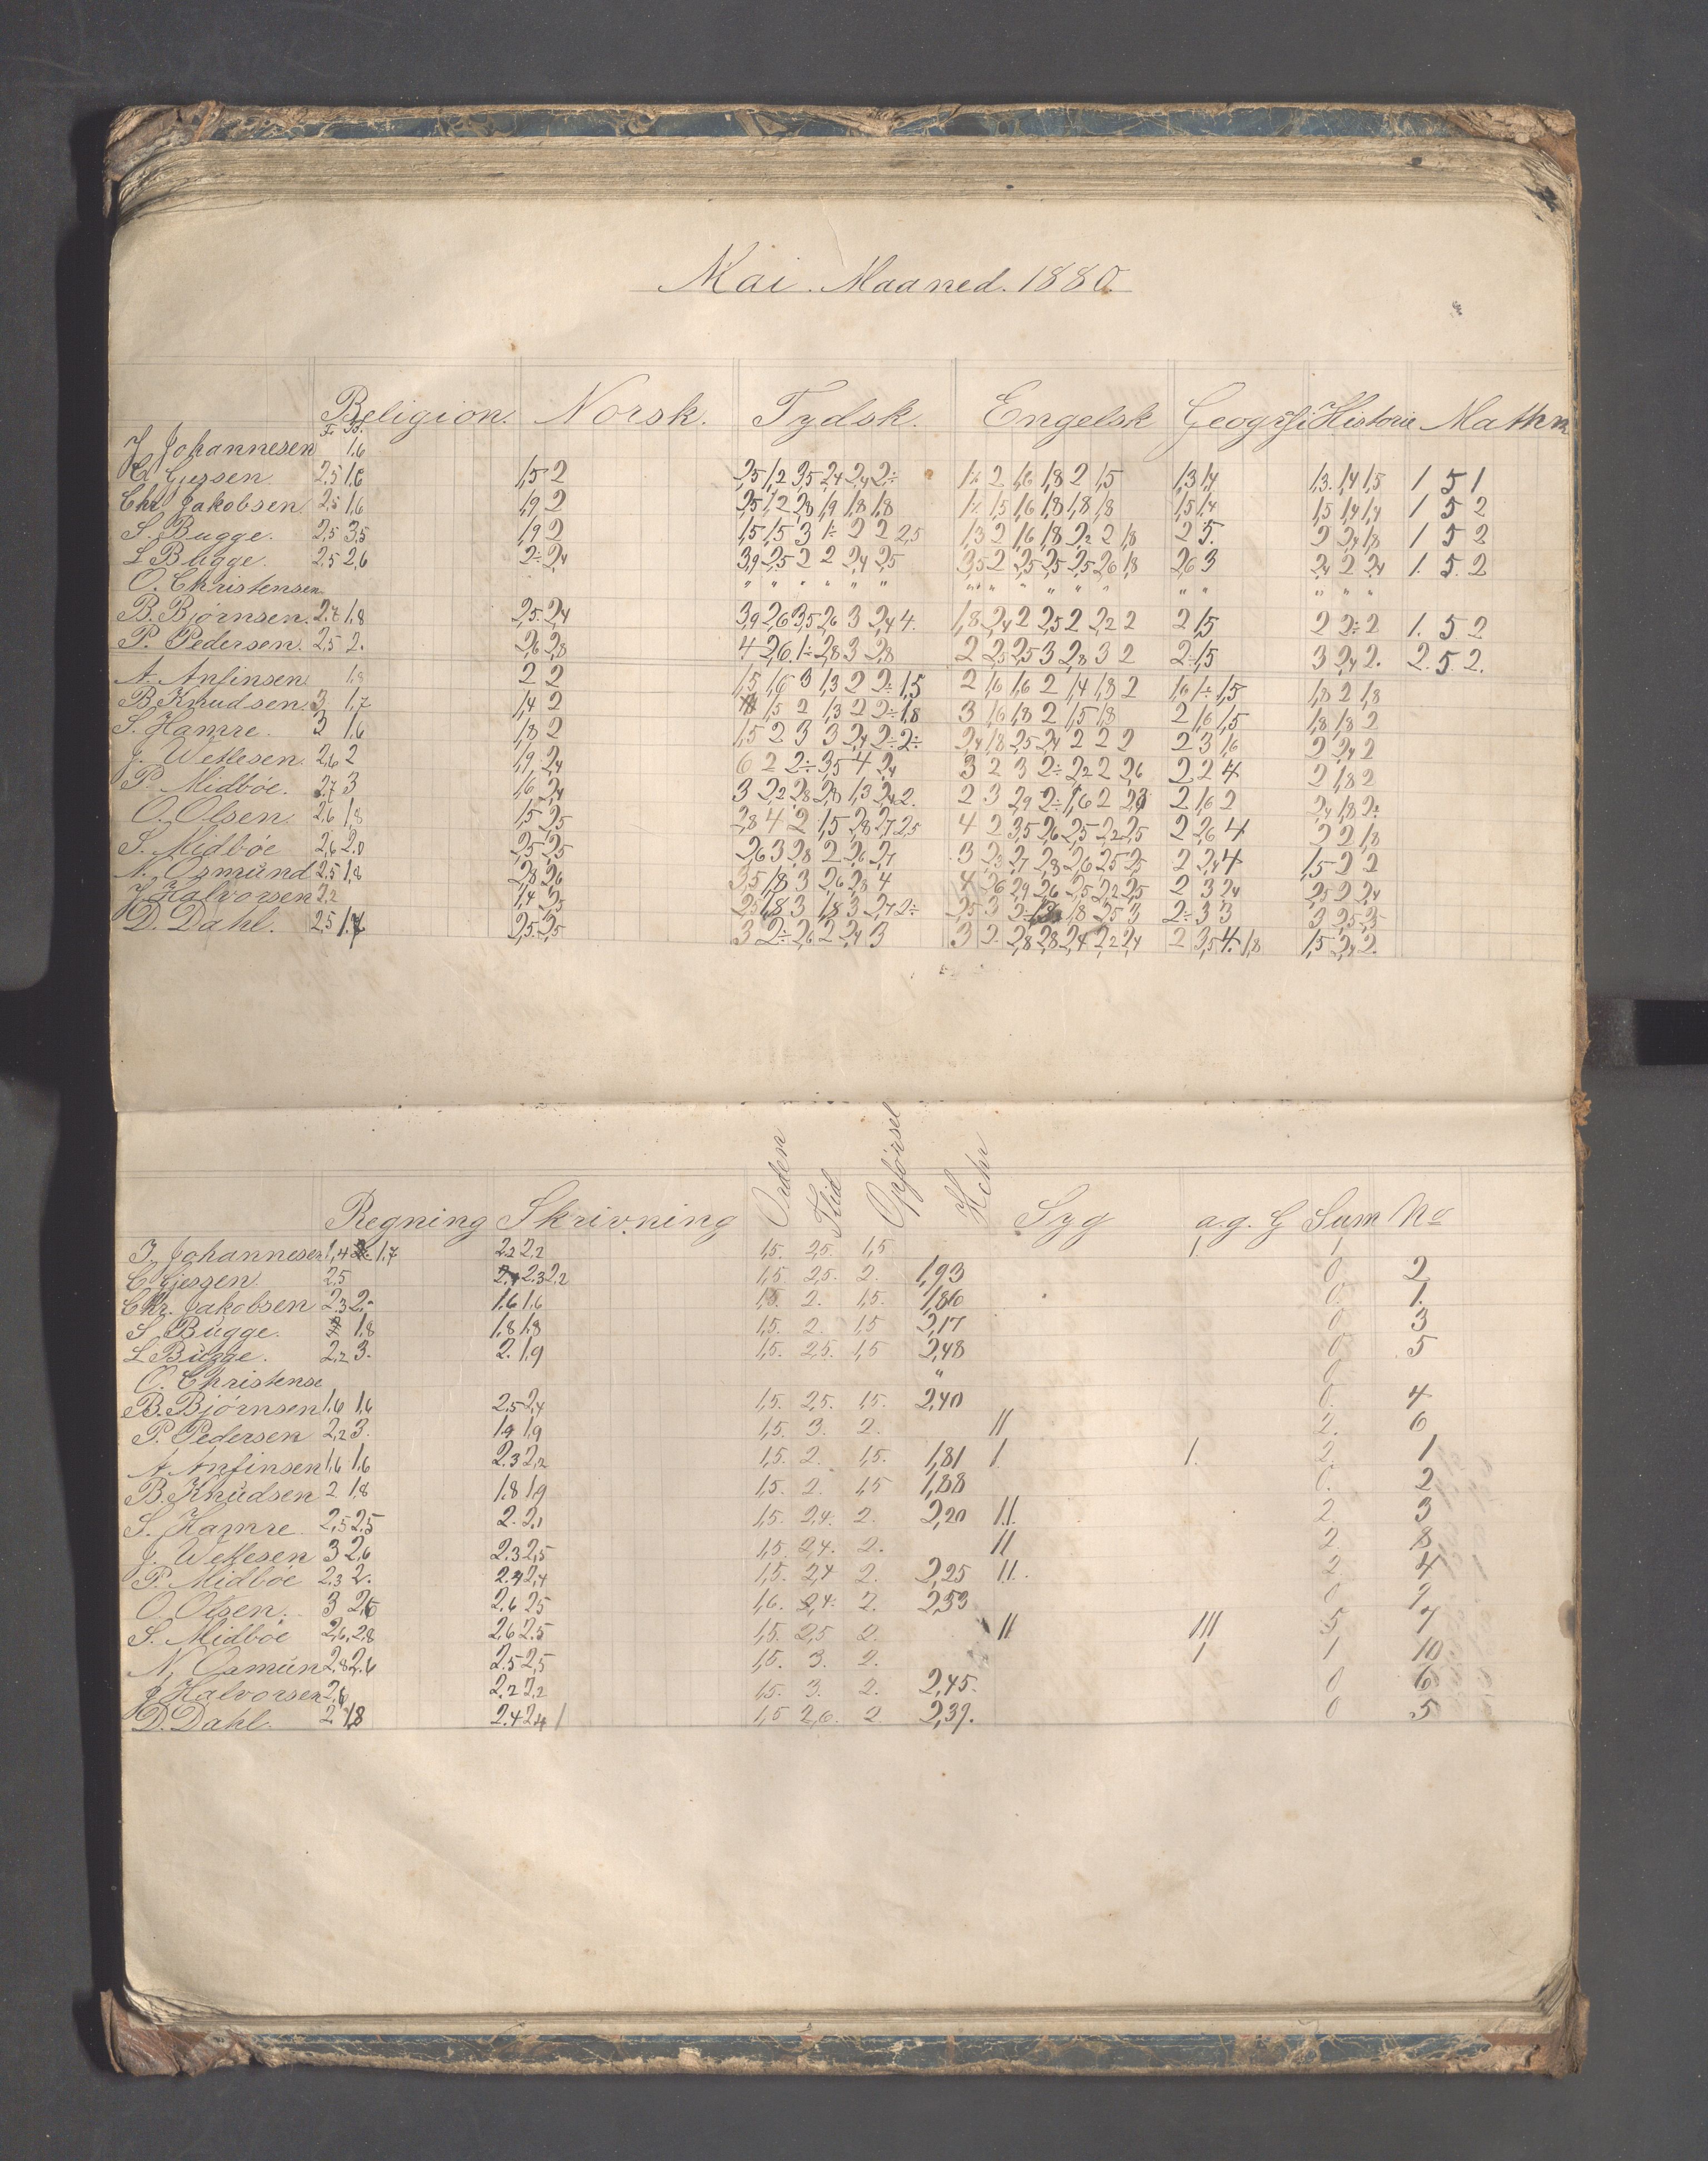 Mai. Maaned. 1880.
Religion. Norsk. Tydsk. Engelsk Geogrfi Historie Mathm
J Johannesen 1,6
C. Gjessen 2,5 1,6 1,5 2 1,3 1,4 1,3. 1,4 1,5 1 5 1
Chr Jakobsen 2,5 1,6 1,9 2 1,5 1,4 1,5 1,4 1,4 1 5 2
S. Bugge. 2,5 3,5 1,9 2 1,5 1,5 3 1÷ 2 2 2,5 1,3 2 1,6 1,8 2,2 2 1,8 2 5. 2 2,4 1,8 1 5 2
L Bugge. 2,5 2,6 2÷ 2,4 3,9 2,5 2 2 2,4 2,5 3,5 2 2,5 2,5 2,5 2,6 1,8 2,6 3 2,4 2 2,4 1. 5. 2
O. Christensen " " " " " " " " " " " " " " " " " "
B. Bjørnsen. 2,7 1,8 2,5. 2,4 3,9 2,6 3,5 2,6 3 2,4 4. 1,8 2,4 2 2,5 2 2,2 2 2 1,5 2 2÷ 2 1. 5 2
P. Pedersen. 2,5 2. 2,6 2,8 4 2,6. 1÷ 2,8 3 2,8 2 2,5 2,5 3 2,8 3 2 2÷ 1,5 3 2,4 2. 2. 5. 2.
A. Anfinsen 1,8 2 2 1,5 1,6 3 1,3 2 2÷ 1,5 2 1,6 1,6 2 1,4 1,8 2 1,6 1÷ 1,5 1,8 2 1,8
B Knudsen. 3 1,7 1,4 2 1,5 2 1,3 2 2÷ 1,8 3 1,6 1,8 2 1,5 1,8 2 1,6 1,5 1,8 1,8 2
S. Hamre. 3 1,6 1,8 2 1,5 2 3 3 2,4 2÷ 2÷ 2,4 1,8 2,5 2,4 2 2 2 2 3 1,6 2 2,4 2
J. Wetlesen. 2,6 2 1,9 2,4 6 2 2÷ 3,5 4 2,4 3 2 3 2÷ 2,2 2 2,6 2 2 4 2 1,8 2
P. Midbøe. 2,7 3 1,6 2,4 3 2,2 2,8 2,8 1,3 2,4 2. 2 3 2,9 2÷ 1,6 2 2 1,6 2 2,4 1,8 2÷
O. Olsen. 2,6 1,8 1,5 2,5 3,8 4 2 1,5 2,8 2,7 2,5 4 2 3,5 2,6 2,5 2,2 2,5 2 2,6 4 2 2 1,8
S. Midbøe 2,6 2,0 2,5 2,5 2,6 3 2,8 2 2,6 2,7 3 2,3 2,7 2,8 2,6 2,5 2,5 2 2,4 4 1,5 2 2
N. Osmund 2,5 1,8 2,8 2,6 3,5 1,8 3 2,6 2,8 4 4 2,6 2,9 2,6 2,5 2,2 2,5 2 3 2,4 2,5 2 2,4
J. Halvorsen 2,2 1,4 2,5 2,5 1,8 3 1,8 3 2,7 2÷ 2,5 3 1,8 2,5 3 2÷ 3 3 3 2,5 2,5
D. Dahl. 2,5 1,7 2,5. 2,5 3 2÷ 2,6 2 2,4 3 3 2. 2,8 2,8 2,4 2,2 2,4 2 3,5 4. 1,8 1,5 2,4 2.
Regning Skrivning Orden Flid Opførsel Syg a.g. G Sum No
J. Johannesen 1,4 1,7 2,2 2,2 1,5. 2,5. 1,5 1 1
C Gjessen. 2,5 2,3 2,2 1,5. 2,5. 2. 1,93 0. 2
Chr. Jakobsen 2,3 2,- 1,6 1,6 1,5. 2. 1,5. 1,86 0. 1.
S Bugge. 1,8 1,8 1,8 1,5. 2. 1,5 2,17 0 3
L Bugge. 2,2 3. 2. 1,9 1,5. 2,5. 1,5 2,48 0 5
O. Christense " 0
B. Bjørnsen 1,6 1,6 2,5 2,4 1,5. 2,5. 1,5. 2,40 0. 4
P. Pedersen 2,2 3. 1,9 1,9 1,5. 3. 2. II 2. 6
A. Anfinsen 1,6 1,6 2,3 2,2 1,5. 2. 1,5. 1,81 I 1. 2. 1
B. Knudsen 2 1,8 1,8 1,9 1,5. 2. 1,5 1,88 0. 2
S. Hamre. 2,5 2,5 2. 2,1 1,5. 2,4. 2. 2,20 II 2. 3
J. Wetlesen 3 2,6 2,3 2,5 1,5. 2,4. 2. II 2. 8
P. Midbøe 2,3 2. 2,4 1,5. 2,4 2. 2,25 II. 2 4
O. Olsen. 3 2,6 2,6 2,5 1,6. 2,4. 2. 2,53 0
S. Midbøe 2,6, 2,8 2,6 2,5 1,5. 2,5 2. II III 5 7
N. Osmun 2,8 2,6 2,5 2,5 1,5. 3. 2. I 1 10
J Halvorsen 2,6 2,2 2,2 1,5. 3. 2. 2,45. 0 6
D. Dahl. 2 1,8 2,4 2,4 1,5 2,6. 2 2,37. 0 5